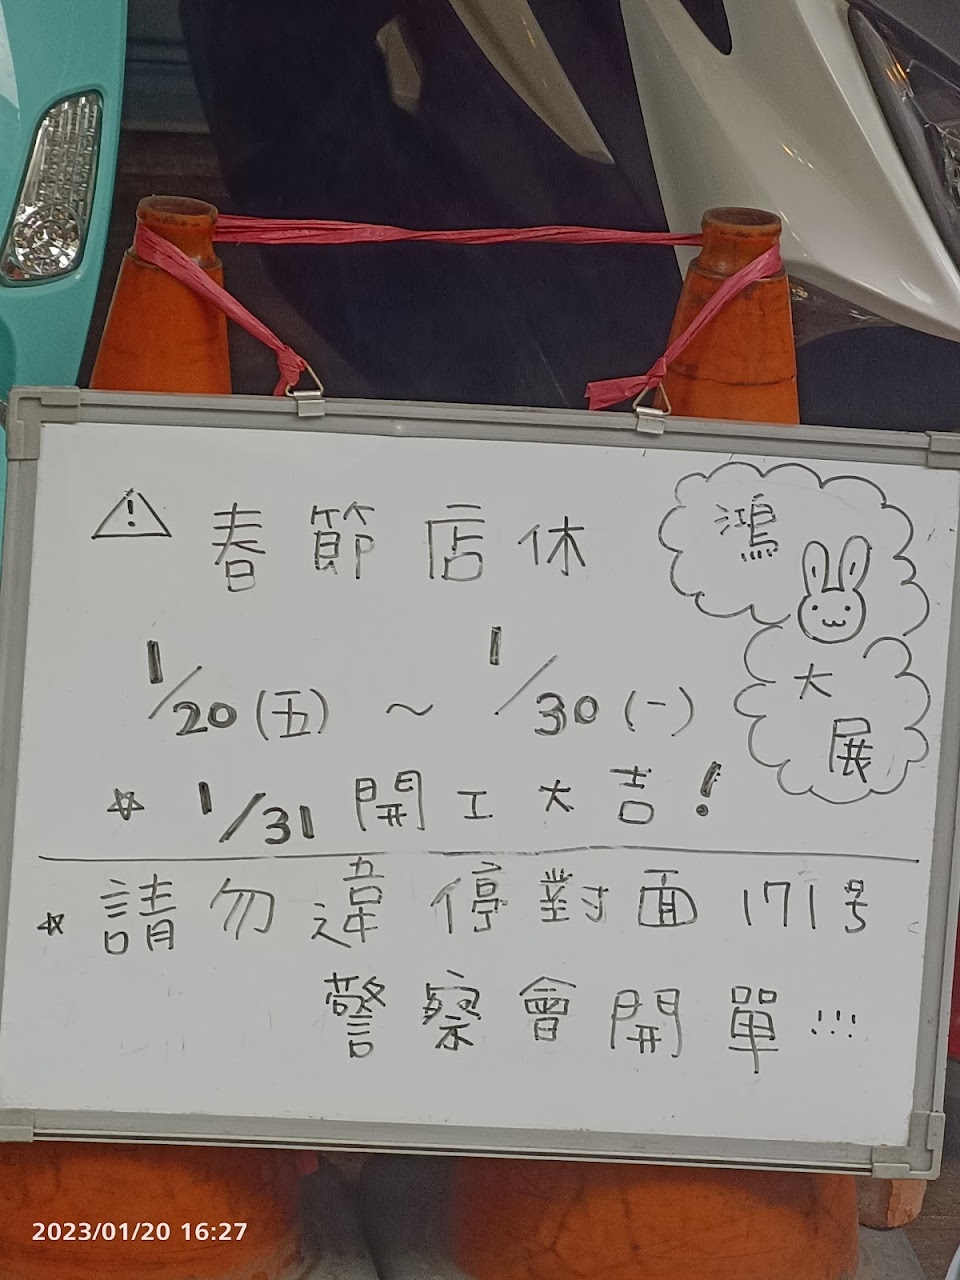 ⚠ 春節店休
鴻
大
展
1/20(五)~1/30(一)
☆ 1/31 開工大吉!
☆ 請勿違停對面171号
警察會開單!!!
2023/01/20 16:27